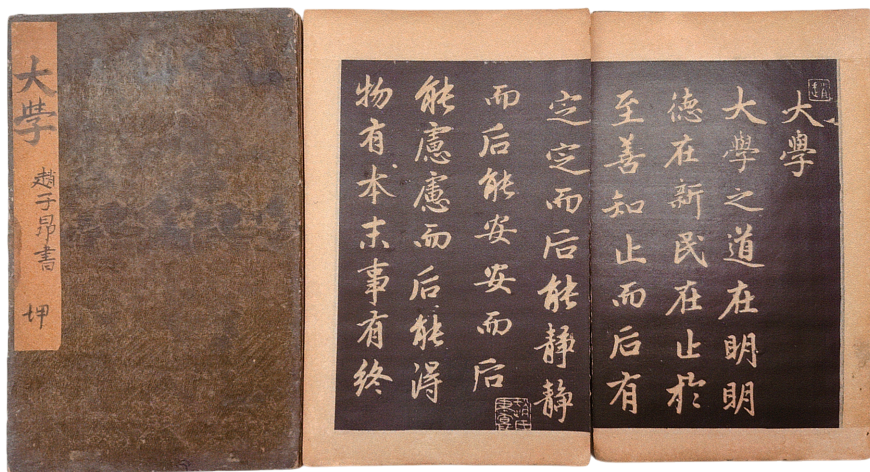 大學
趙子昂書
坤
大學
大學之道在明明
德在新民在止於
至善知止而后有
定定而后能靜靜
而后能安安而后
能慮慮而后能得
物有本末事有終